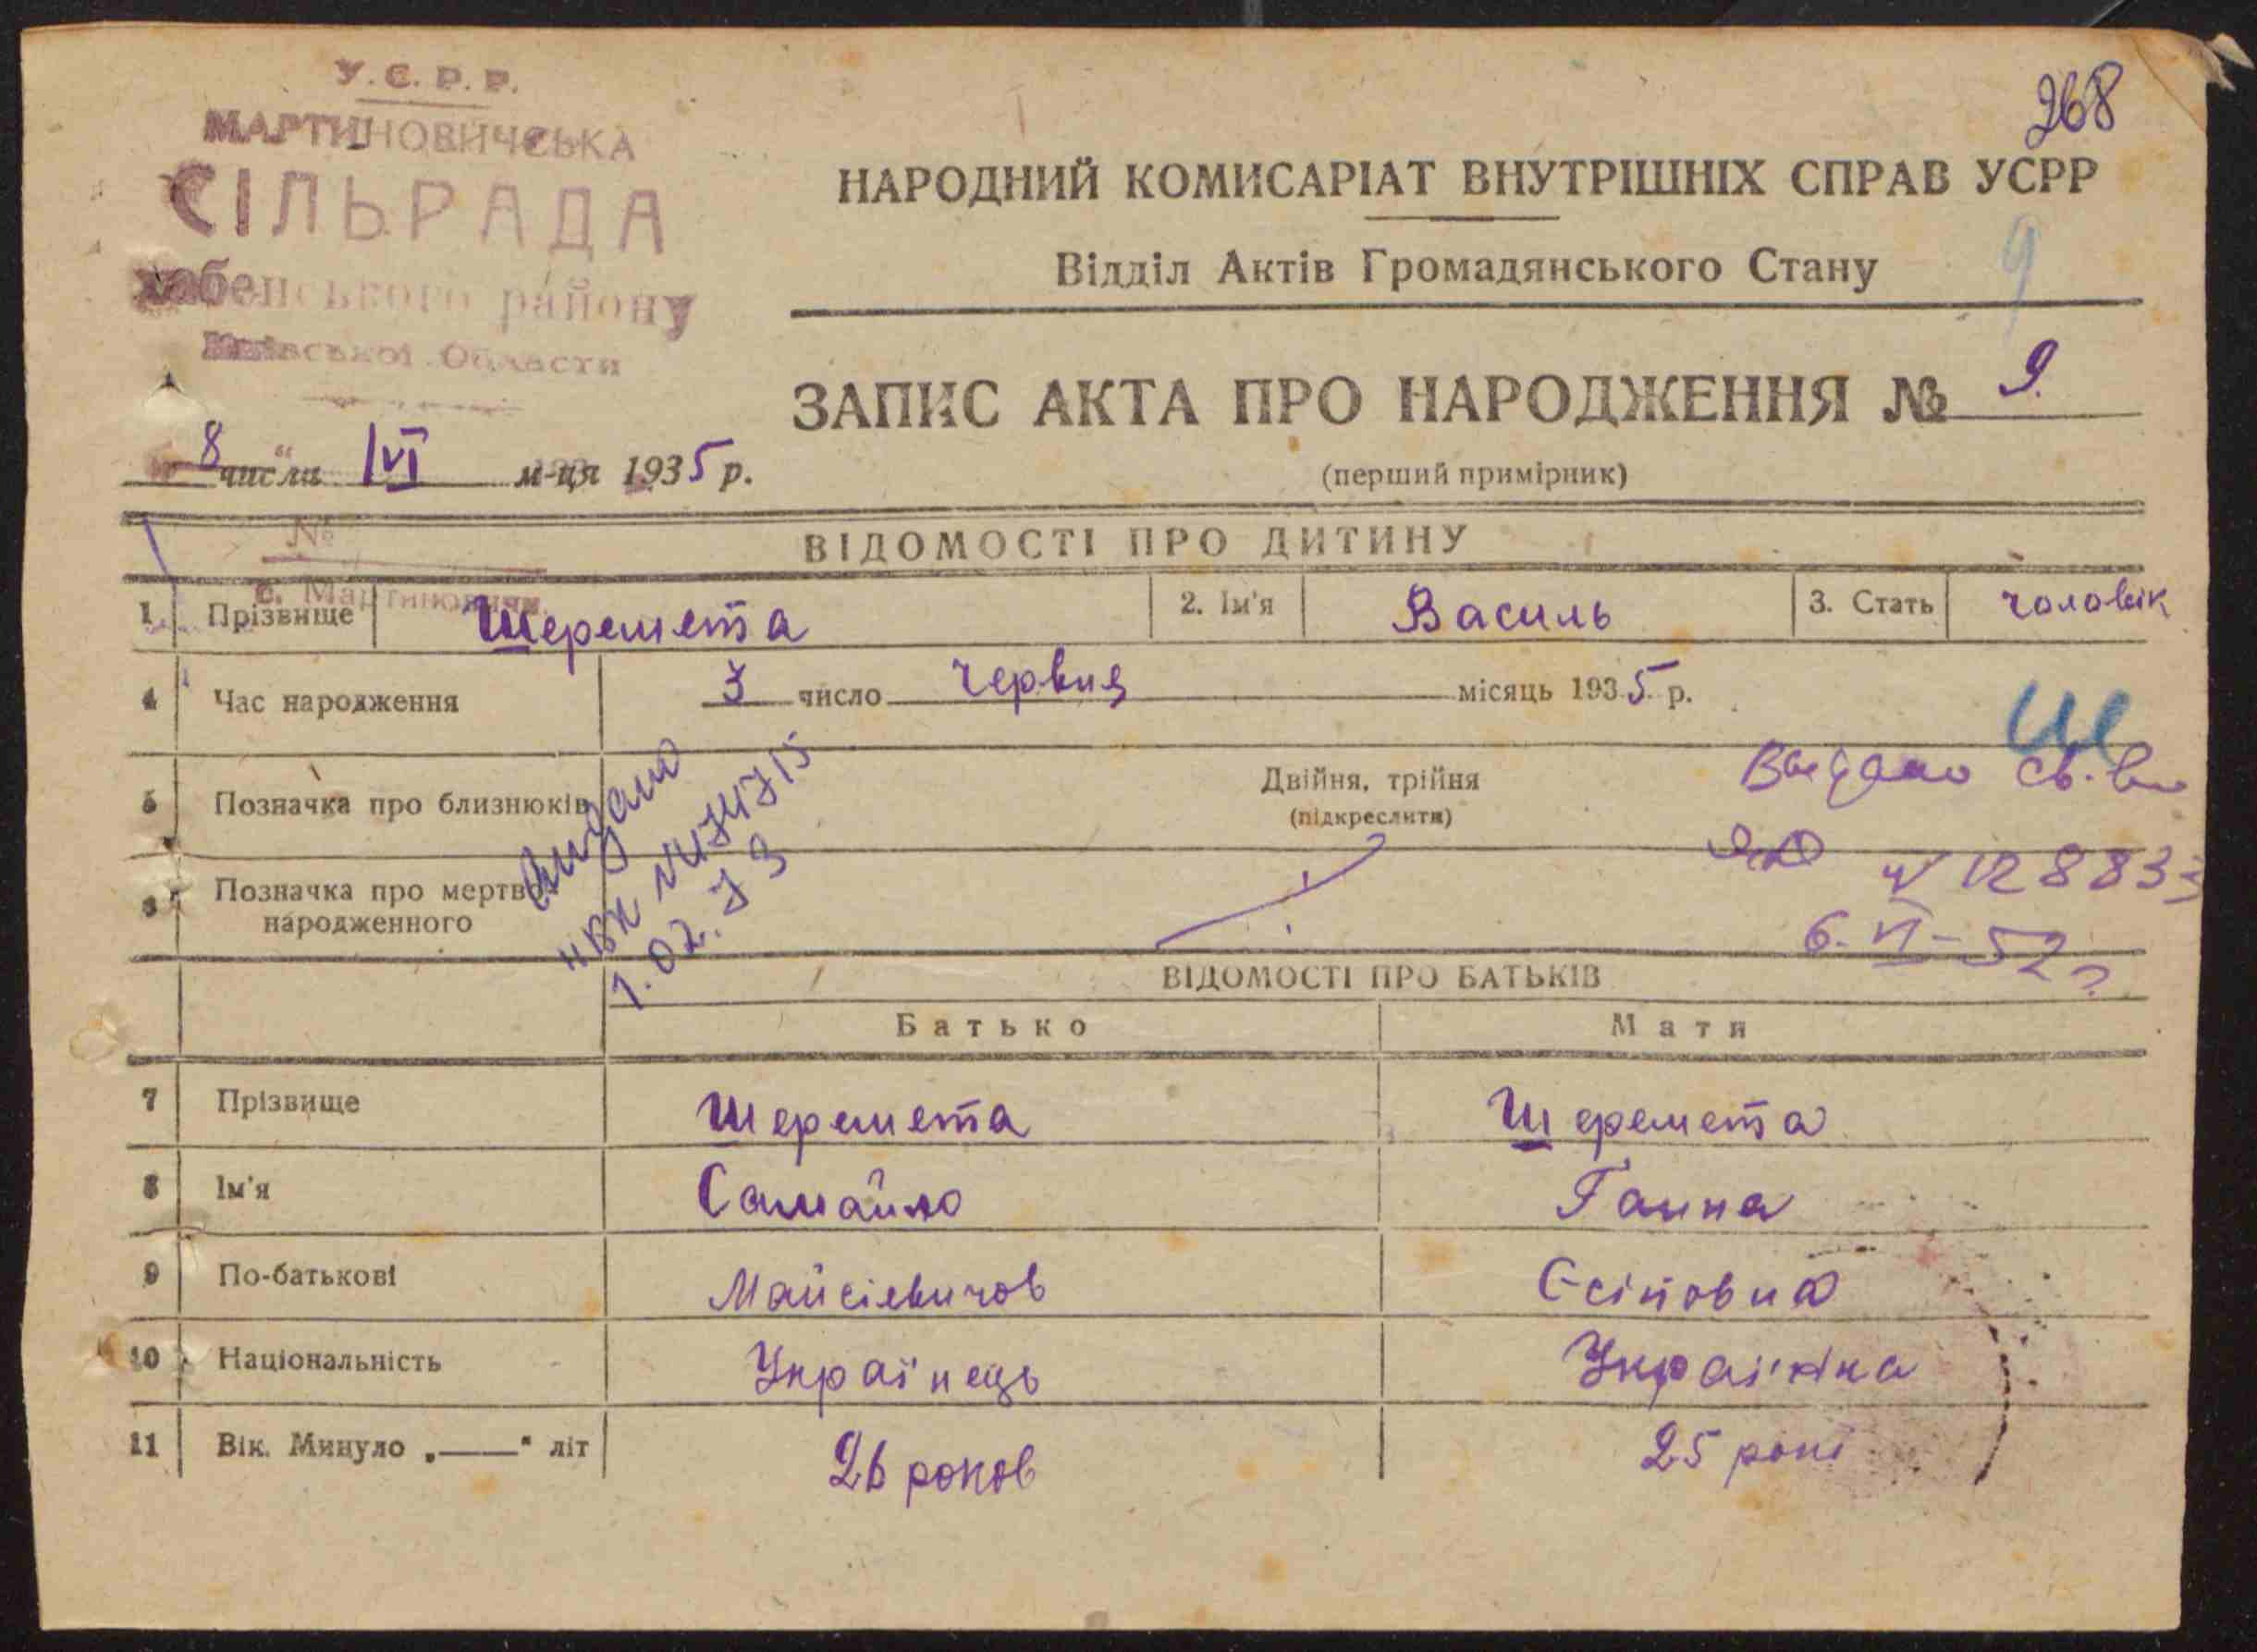 268
У.С.Р.Р.
МАРТИНОВИЧСЬКА
СІЛЬРАДА
Хабенського району
Київської Области
НАРОДНИЙ КОМИСАРІАТ ВНУТРІШНІХ СПРАВ УСРР
Відділ Актів Громадянського Стану
9
ЗАПИС АКТА ПРО НАРОДЖЕННЯ № 9.
(перший примірник)
8 числа VI м-ця 1935 р.
№
с. Мартиновичи.
ВІДОМОСТІ ПРО ДИТИНУ
1 Прізвище Шеремета 2. Ім'я Василь 3. Стать чоловік
4 Час народження 3 число червня місяць 1935 р.
Ш
5 Позначка про близнюків Двійня, трійня
(підкреслити)
Выдано св. во
ЯЮ № 128833
6. VI - 52 г
Выдано
1.02.73
6 Позначка про мертво-
народженного
ВІДОМОСТІ ПРО БАТЬКІВ
Батько Мати
7 Прізвище Шеремета Шеремета
8 Ім'я Самайло Ганна
9 По-батькові Майсієвичов Єсіповна
10 Національність Українець Українка
11 Вік. Минуло „——" літ 26 роков 25 рокі